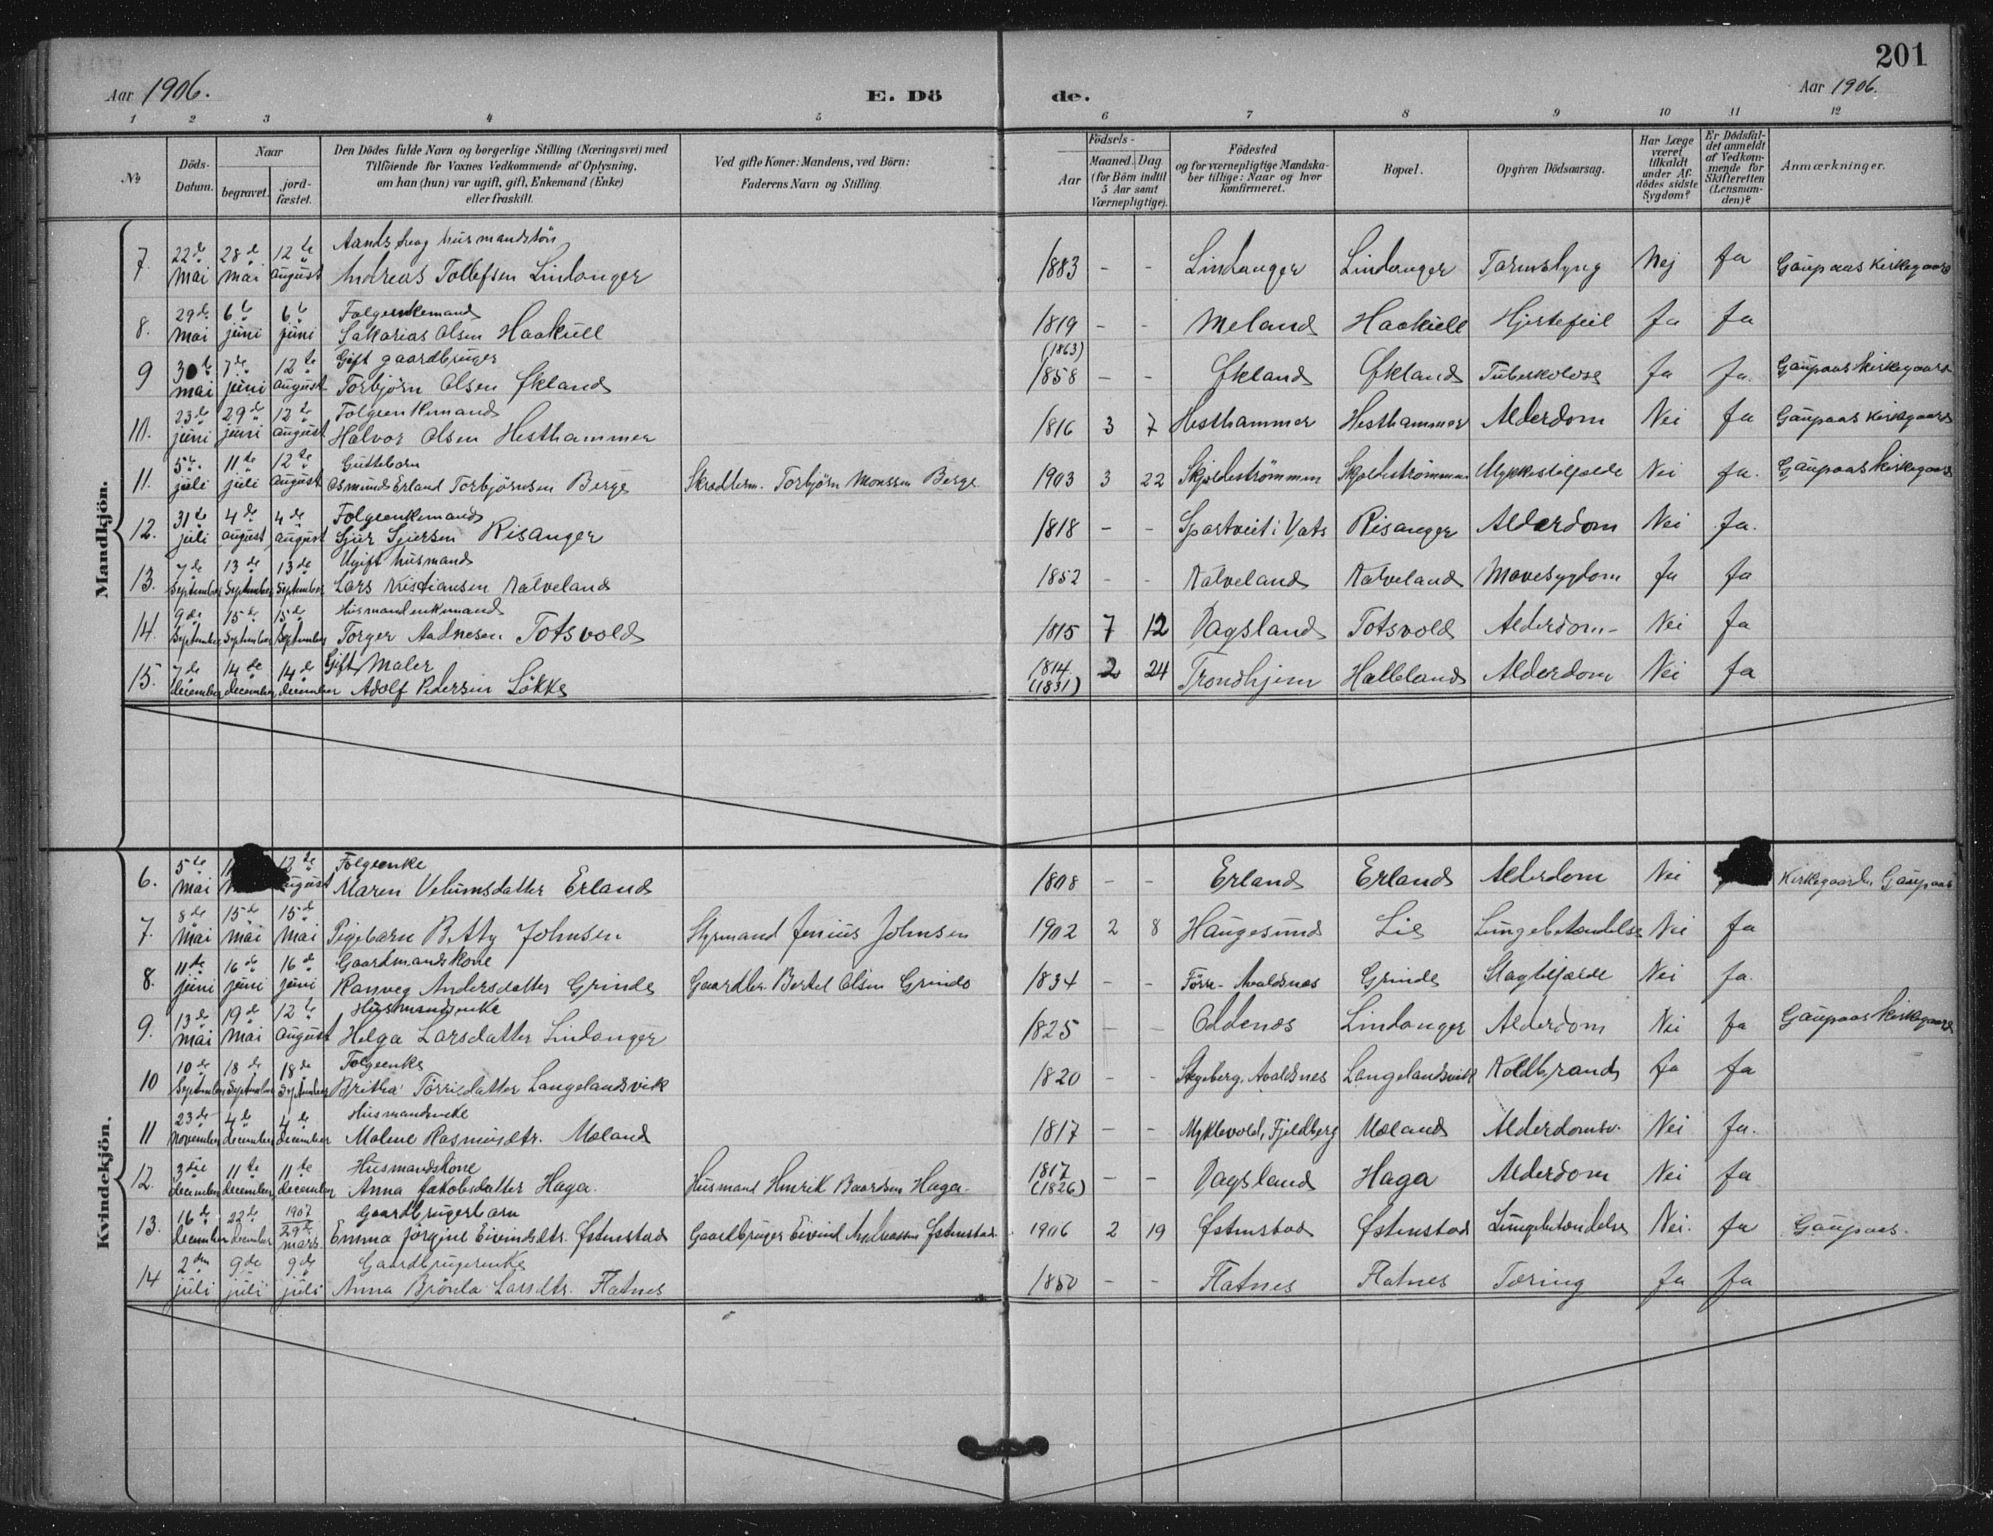 201
Aar 1906. E. Dö de. Aar 1906.
1 2 3 4 5 6 7 8 9 10 11 12
№ Döds-Datum. Naar begravet. jordfæstet. Den Dödes fulde Navn og borgerlige Stilling (Næringsvei) med Tilföiende for Voxnes Vedkommende af Oplysning, om han (hun) var ugift, gift, Enkemand (Enke) eller fraskilt. Ved gifte Koner: Mandens, ved Börn: Faderens Navn og Stilling. Födsels- Aar Maaned. Dag (for Börn indtil 5 Aar samt Værnepligtige). Födested og for værnepligtige Mandskaber tillige: Naar og hvor konfirmeret. Bopæl. Opgiven Dödsaarsag. Har Læge været tilkaldt under Afdödes sidste Sygdom? Er Dödsfaldet anmeldt af Vedkommende for Skifteretten (Lensmanden)? Anmærkninger.
Mandkjön.
7. 22de mai 28de mai 12te august husmandssøn Andreas Tollefsen Lindanger 1883 - - Lindanger Lindanger Tarmslyng Nej Ja Gaupaas Kirkegaard
8. 29de mai 6te juni 6te juni Folgeenkemand Sakarias Olsen Haakull 1819 - - Meland Haakull Hjertefeil Ja Ja
9 30te mai 7de juni 12te august Gift gaardbruger Torbjørn Olsen Økland (1863) 1858 - - Økland Økland Tuberkolose Ja Ja. Gaupaas Kirkegaard
10. 23de juni 29de juni 12te august Folgeenkemand Halvor Olsen Hesthammer 1816 3 7 Hesthammer Hesthammer Alderdom Nei Ja Gaupaas Kirkegaard
11. 5te juli 11te juli 12te august Guttebarn Osmund Erland Torbjørnsen Berge Skredderm. Torbjørn Monssen Berge 1903 3 22 Skjoldestrømmen Skjoldestrømmen Nei Ja. Gaupaas Kirkegaard
12. 31te juli 4de august 4de august Folgeenkemand Sjur Sjursen Risanger 1818 - - Spartveit i Vats Risanger Alderdom Nei Ja.
13. 7de September 13de September 13de September Ugift husmand Lars Kristiansen Kalveland 1852 - - Kalveland Kalveland Mavesygdom Ja Ja
14. 9de September 15de September 15de September Husmandenkemand Torger Aadnesen Totsvold 1815 7 12 Dagsland Totsvold Alderdom - Nei Ja
15. 7de december 14de december 14de december Gift Maler Adolf Pedersen Løkke 1814 (1831) 2 24 Trondhjem Halleland Alderdom Nei Ja
Kvindekjön.
6. 5te mai 12te august Folgeenke Maren Vellumsdatter Erland 1808 - - Erland Erland Alderdom Nei Kirkegaard, Gaupaas
7. 8de mai 15de mai 15de mai Pigebarn Betty Johnsen Styrmand Junius Johnsen 1902 2 8 Haugesund Lie Lungebetændelse Nei Ja
8. 11te juni 16de juni 16de juni Gaardmandskone Ranveg Andersdatter Grinde Gaardbr. Bertel Olsen Grinde 1834 - - Førre - Avaldsnes Grinde Slagtilfælde Nei Ja.
9. 13de mai 19de mai 12te august Husmandsenke Helga Larsdatter Lindanger 1825 - - Oldenes Lindanger Alderdom Nei Ja Gaupaas Kirkegaard
10 10de September 18de September 18de September Folgeenke Britha Tørrisdatter Langelandsvik 1820 - - Stegeberg, Avaldsnes Langelandsvik Koldbrand Ja Ja
11 23de November 4de december 4de december Husmandsenke Malene Rasmusdtr. Mæland 1817 - - Myklevold, Fjeldberg Mæland Alderdomsv. Nei Ja.
12. 3die december 11te december 11te december Husmandskone Anna Jakobsdatter Haga. Husmand Henrik Baardsen Haga. 1817 (1826) - - Dagsland Haga Alderdom Nei Ja
13. 16de december 22de December 1907 29de mars Gaardbrugerbarn Emma Jørgine Eivindsdtr. Østenstad Gaardbruger Eivind Andreassen Østenstad 1906 2 19 Østenstad Østenstad Lungebetændelse Nei. Ja Gaupaas.
14 2den juli 9de juli 9de juli Gaardbrugerenke Anna Bjørnla Larsdtr. Flatnes 1850 - - Flatnes Flatnes Tæring Ja Ja